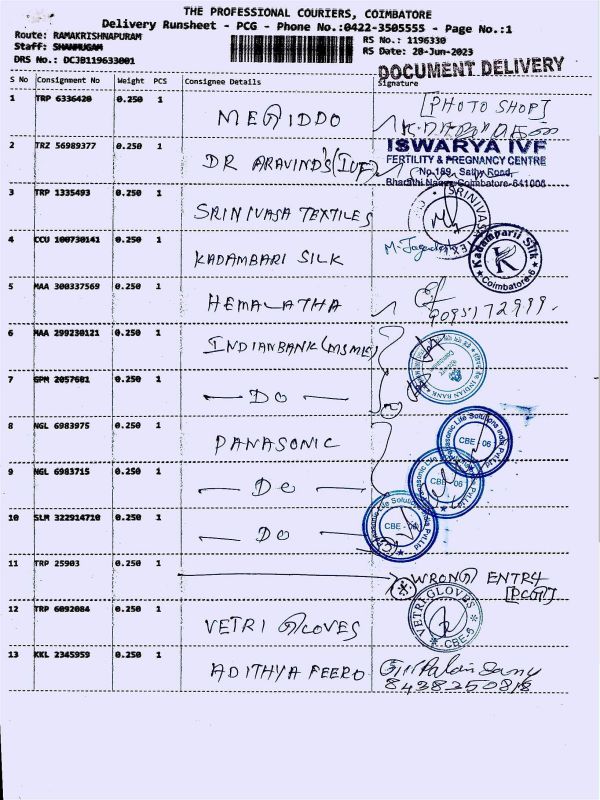 THE PROFESSIONAL COURIERS, COIMBATORE
Delivery Runsheet - PCG - Phone No.:0422-3505555 - Page No.:1
Route: RAMAKRISHNAPURAM
RS No.: 1196330
Staff: SHANMUGAM
RS Date: 28-Jun-2023
DRS No.: DCJB119633001
DOCUMENT DELIVERY
S No Consignment No Weight PCS Consignee Details Signature
1 TRP 6336420 0.250 1 MEGIDDO [PHOTO SHOP]
2 TRZ 56989377 0.250 1 DR ARAVIND'S (IVF)
ISWARYA IVF
FERTILITY & PREGNANCY CENTRE
No.189, Sathy Road,
Bharathi Nagar, Coimbatore-641006
3 TRP 1335493 0.250 1 SRINIVASA TEXTILES
SRINIVASA
4 CCU 100730141 0.250 1 KADAMBARI SILK
Kadamparii Silk
Coimbatore-6
5 MAA 300337569 0.250 1 HEMALATHA
9095172999.
6 MAA 299230121 0.250 1 INDIANBANK (MSME)
INDIAN BANK
7 GPM 2057601 0.250 1 — DO —
8 NGL 6983975 0.250 1 PANASONIC
Panasonic Life Solutions India Pvt Ltd
CBE - 06
9 NGL 6983715 0.250 1 — DO —
Panasonic Life Solutions India Pvt Ltd
CBE - 06
10 SLM 322914710 0.250 1 — DO —
Panasonic Life Solutions India Pvt Ltd
CBE - 06
11 TRP 25903 0.250 1 WRONG ENTRY
[PCG]
12 TRP 6092084 0.250 1 VETRI GLOVES
VETRI GLOVES
CBE-6
13 KKL 2345959 0.250 1 ADITHYA FEERO
8438350818